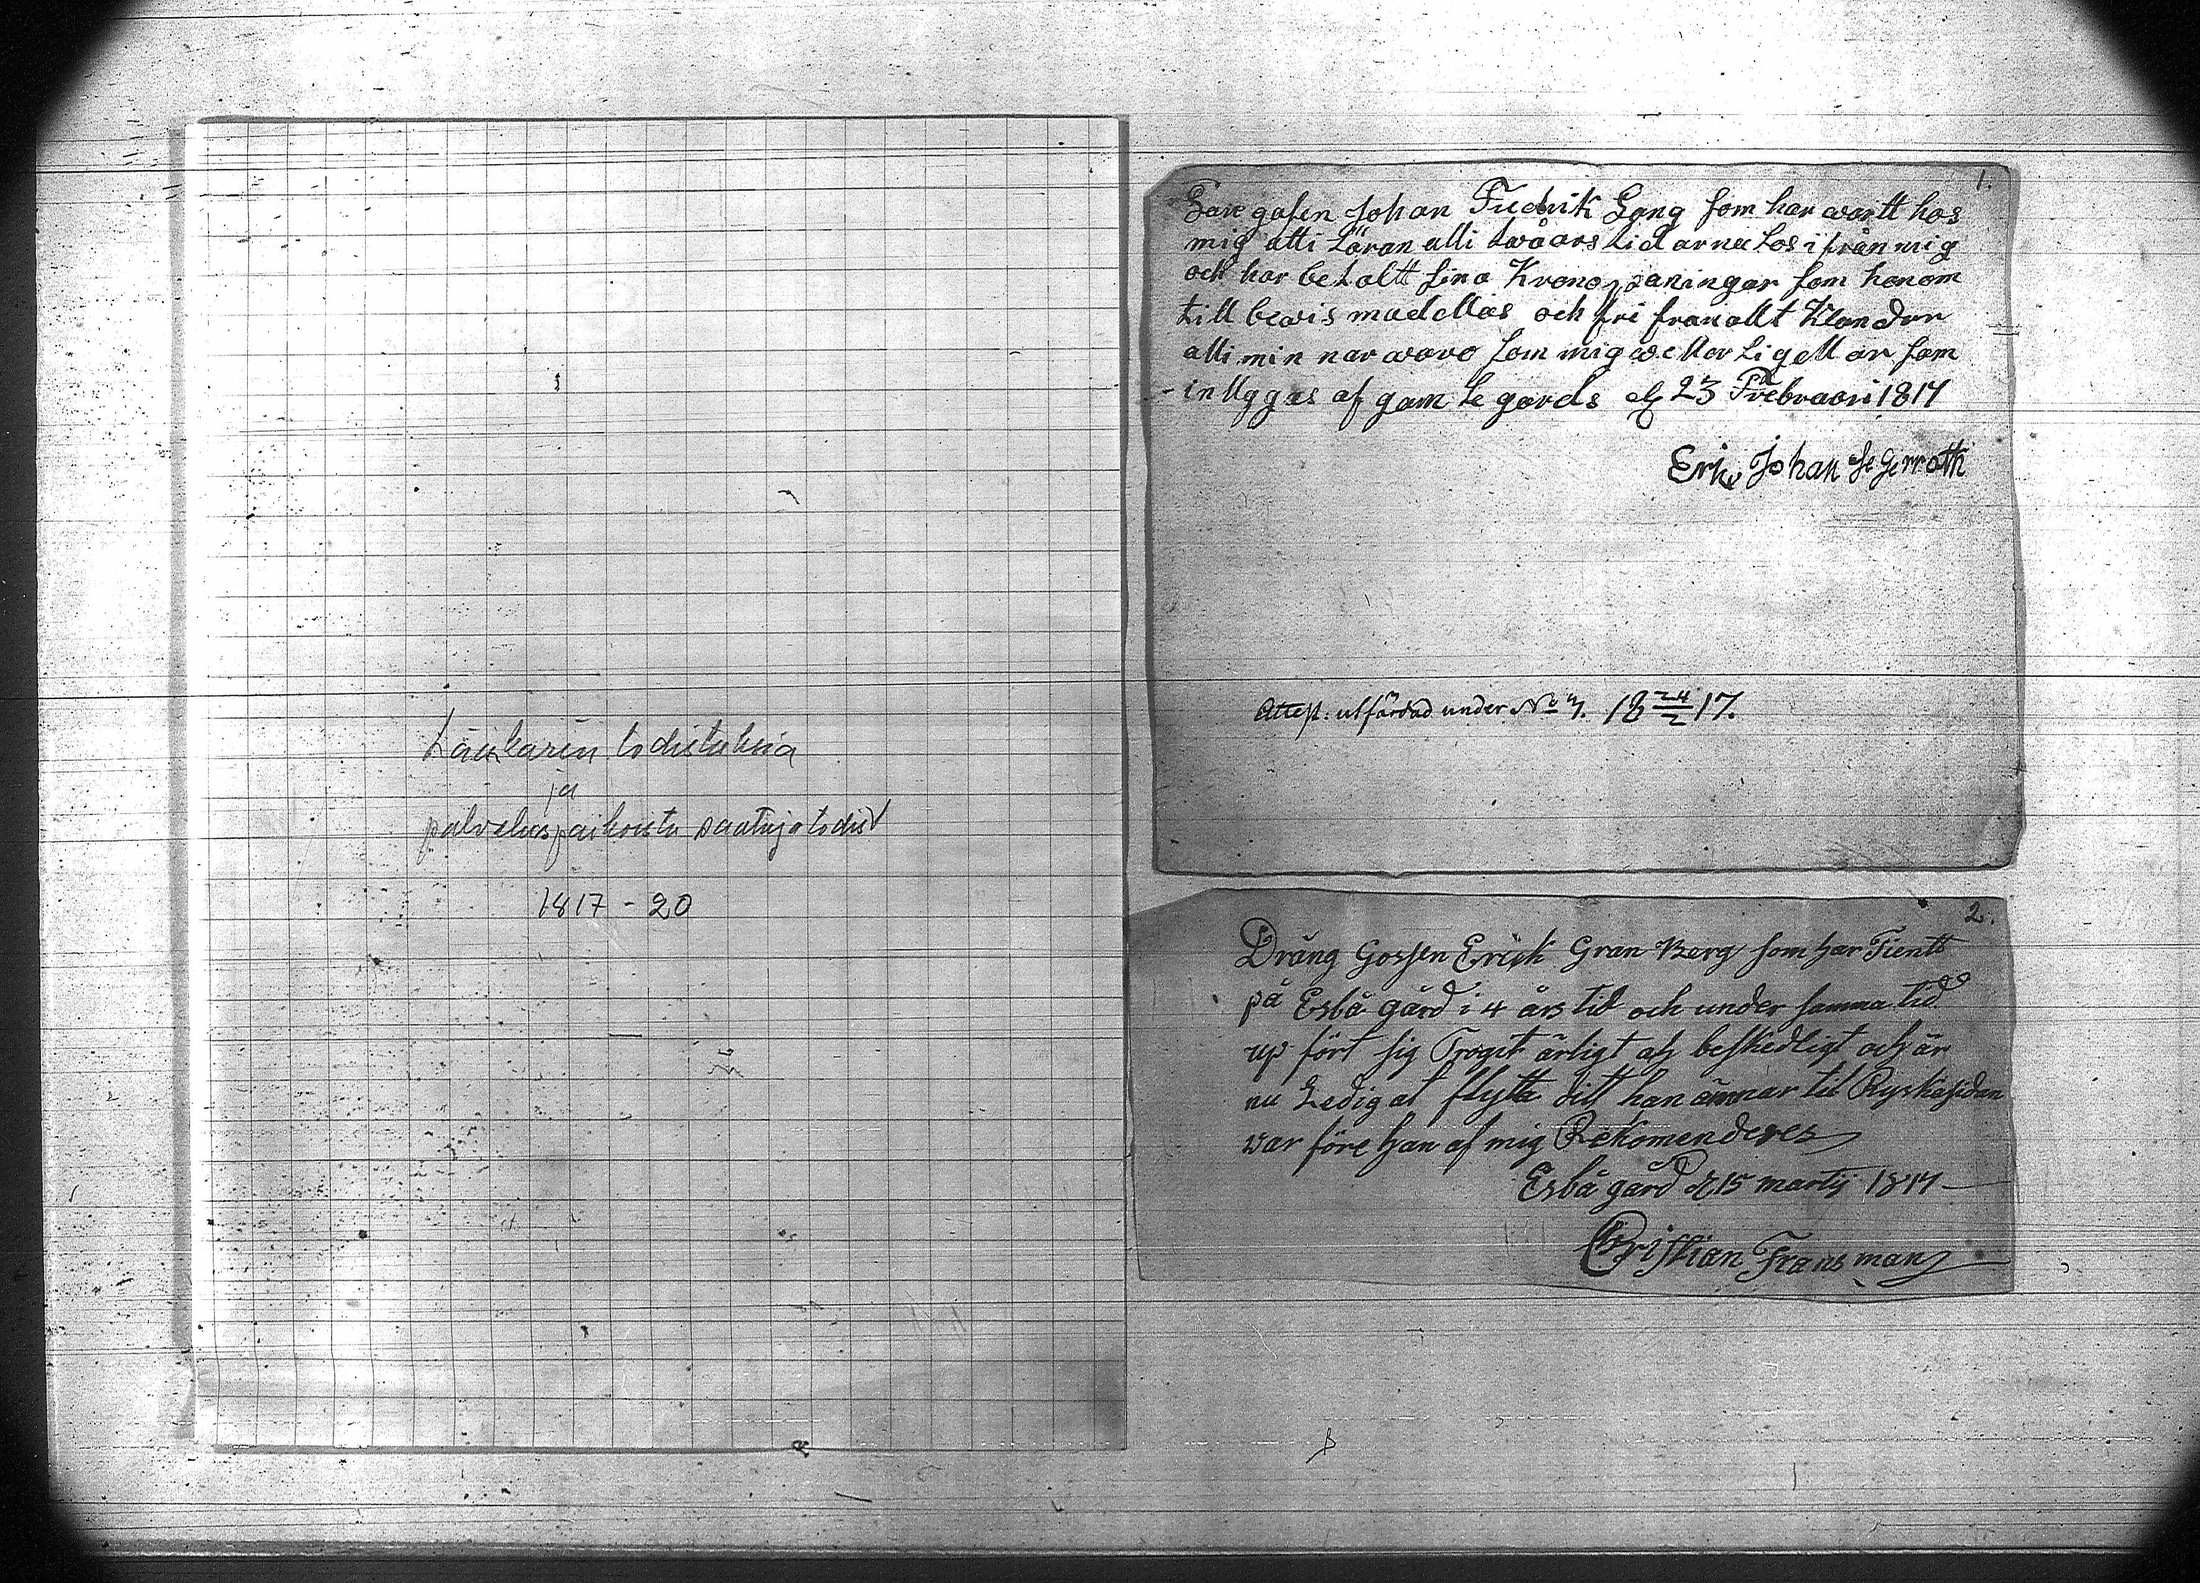 Lääkärin todistuksia
ja
palveluspaikoista saatuja todist
1817 - 20
1.
gosen Johan Fredrik Gong som har wartt hos
mig atti Läran atti twåars tid arnu Los ifrån mig
och har betaltt sina Krono som honom
till bewis madellas och fri fran allt Klandur
atti min nar waro som mig wetterligett ar som
intyggas af gam le gards d 23 Frebruari 1817
Erik Johan Segerroth
Attest: utfärdad under No 7. 18 24/2 17.
2.
Dräng Gossen Erick Gran Berg som har Tientt
på Esbå gård i 4 års tid och under samma tid
up fört sig Trogit ärligt och beskedligt och är
nu Ledig at flytta ditt han ämnar til Ryskasidan
war före han af mig Rekomenderes
Esbå gård d 15 martij 1817
Christian Fransman